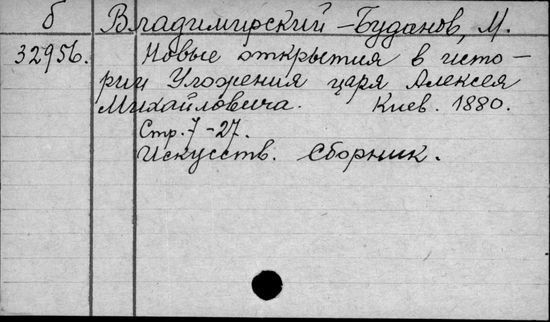 б Владимирский-Буданов, М.
32956. Новые открытия в исто-
рии Уложения царя Алексея
Михайловича. Киев. 1880.
Стр. 7-27.
Искусств. Сборник.